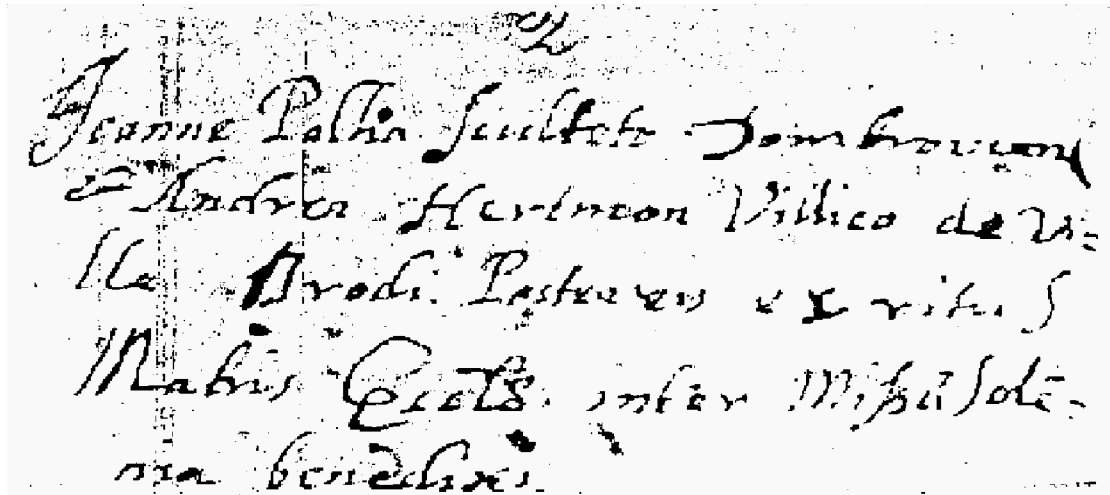 Joanne Paltin Sculteto Dombrovian
& Andrea Herman Villico de Vi=
lla Brodi. Postea eos ex ritu S
Matris Eccls. inter Missā Solē=
nia benedixi.